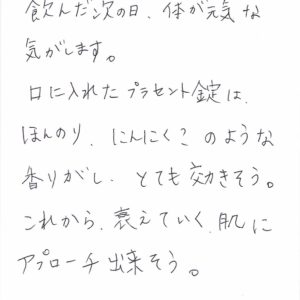 飲んだ次の日、体が元気な
気がします。
口に入れたプラセント錠は、
ほんのり、にんにく？のような
香りがし、とても効きそう。
これから、衰えていく、肌に
アプローチ出来そう。